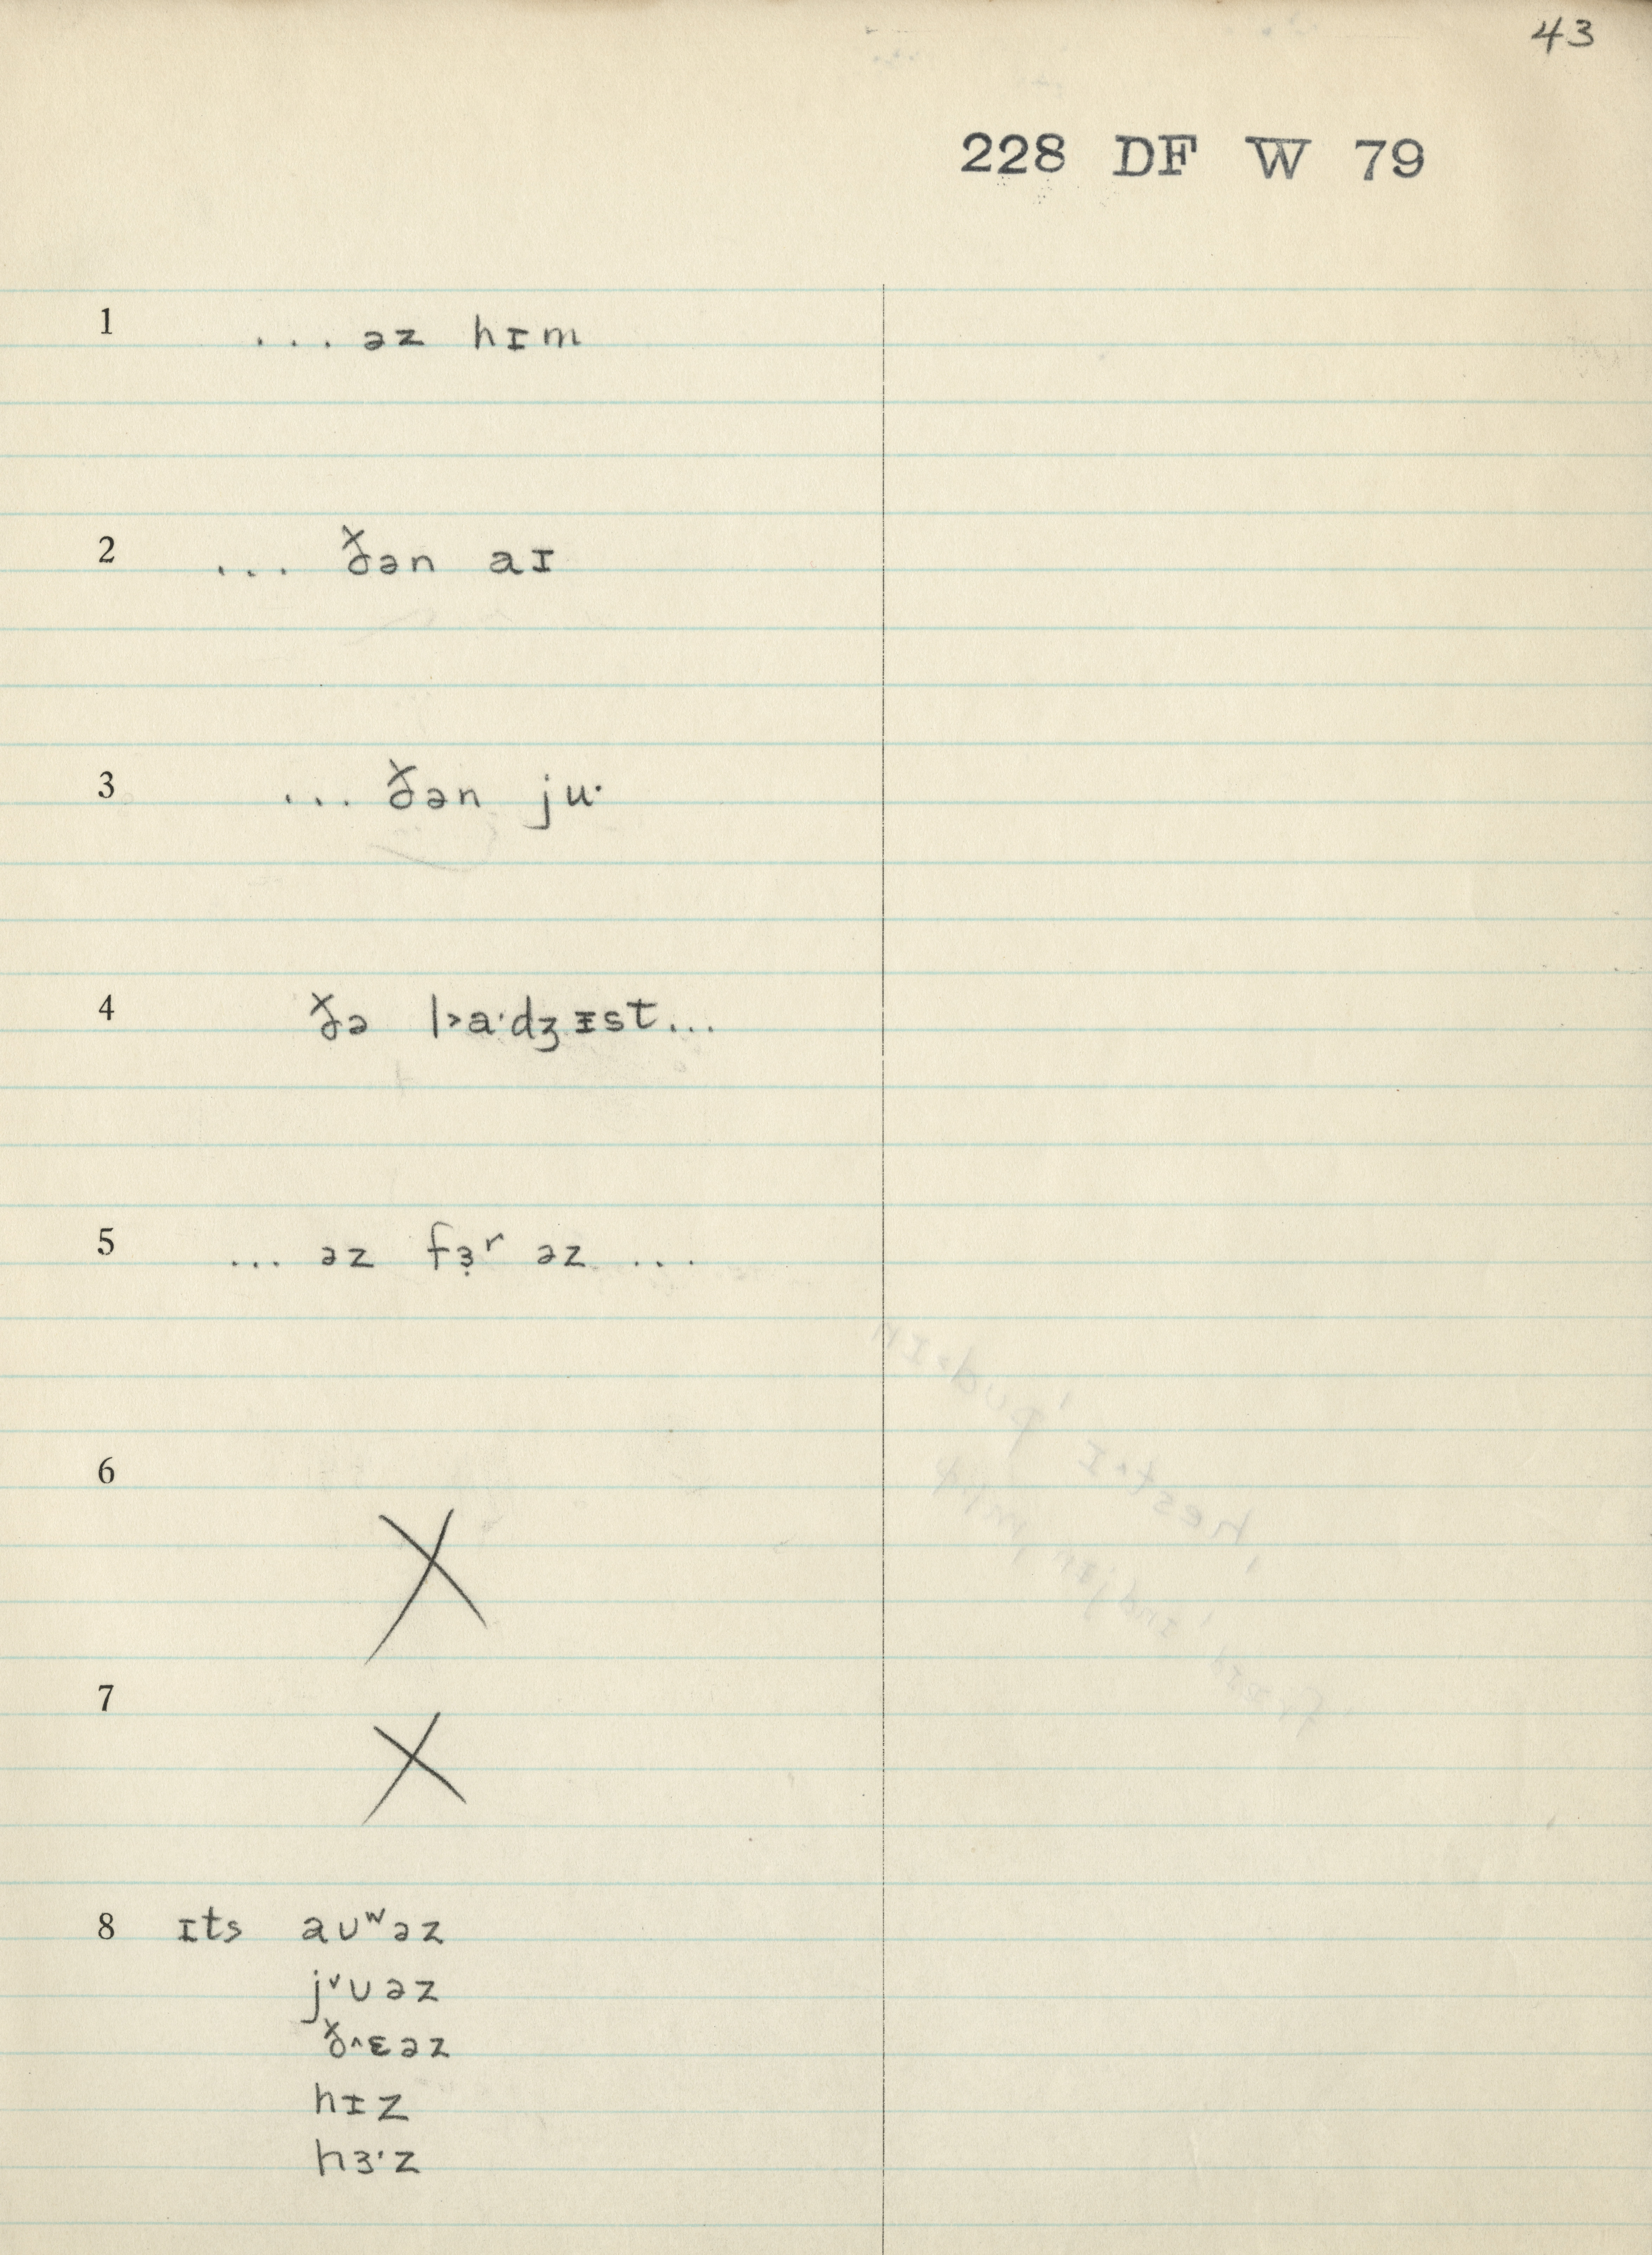 43
228 DF W 79
1 ... əz hɪm
2 ... ðən aɪ
3 ... ðən ju·
4 ðə l˃a·dʒɪst...
5 ... əz fɜ̣ʳ əz ...
6 X
7 X
8 ɪts aʊʷəz
j˅ʊəz
ð˄ɛəz
hɪz
hɜ·z